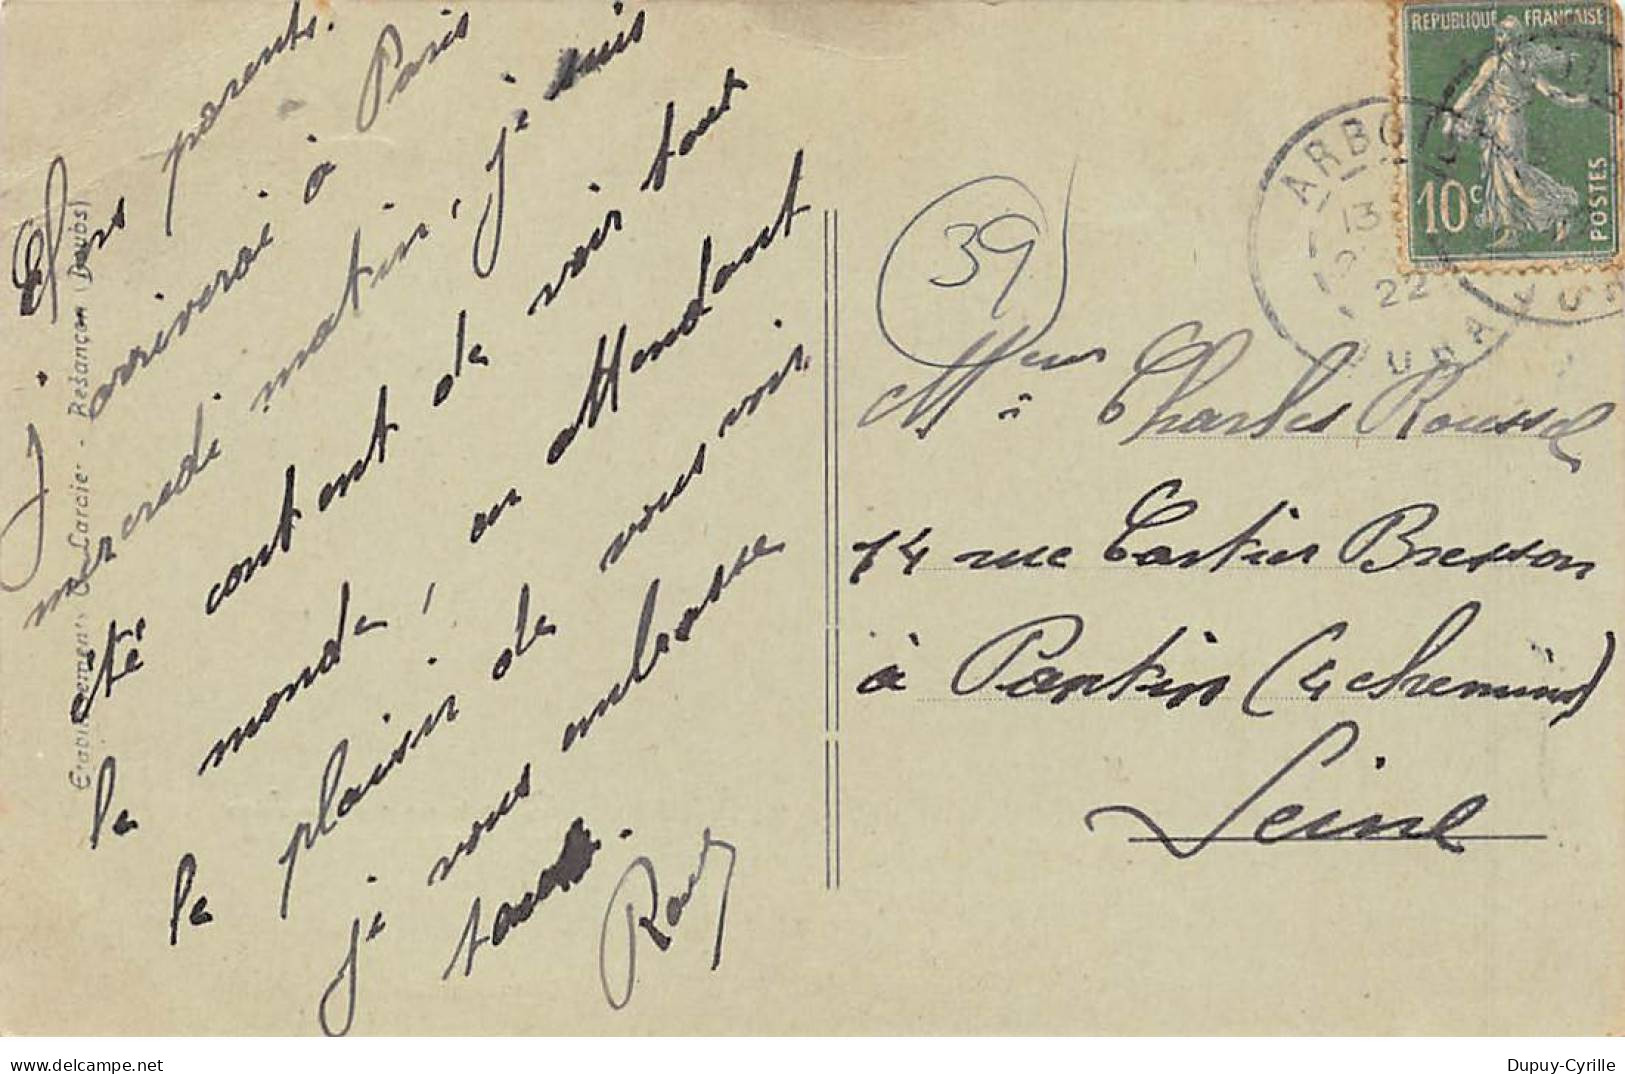 Chers parents.
J'arriverai à Paris
mercredi matin, je suis
été content de voir tout
le monde, en attendant
le plaisir de vous voir
je vous embrasse
tous.
Établissements C. Lardier - Besançon (Doubs)
39
RÉPUBLIQUE FRANÇAISE
10c
POSTES
ARBO
13
22
JURA
JURA
Mr Charles Roussel
14 rue Cartier Bresson
à Pantin (4 chemins)
Seine
delcampe.net
Dupuy-Cyrille